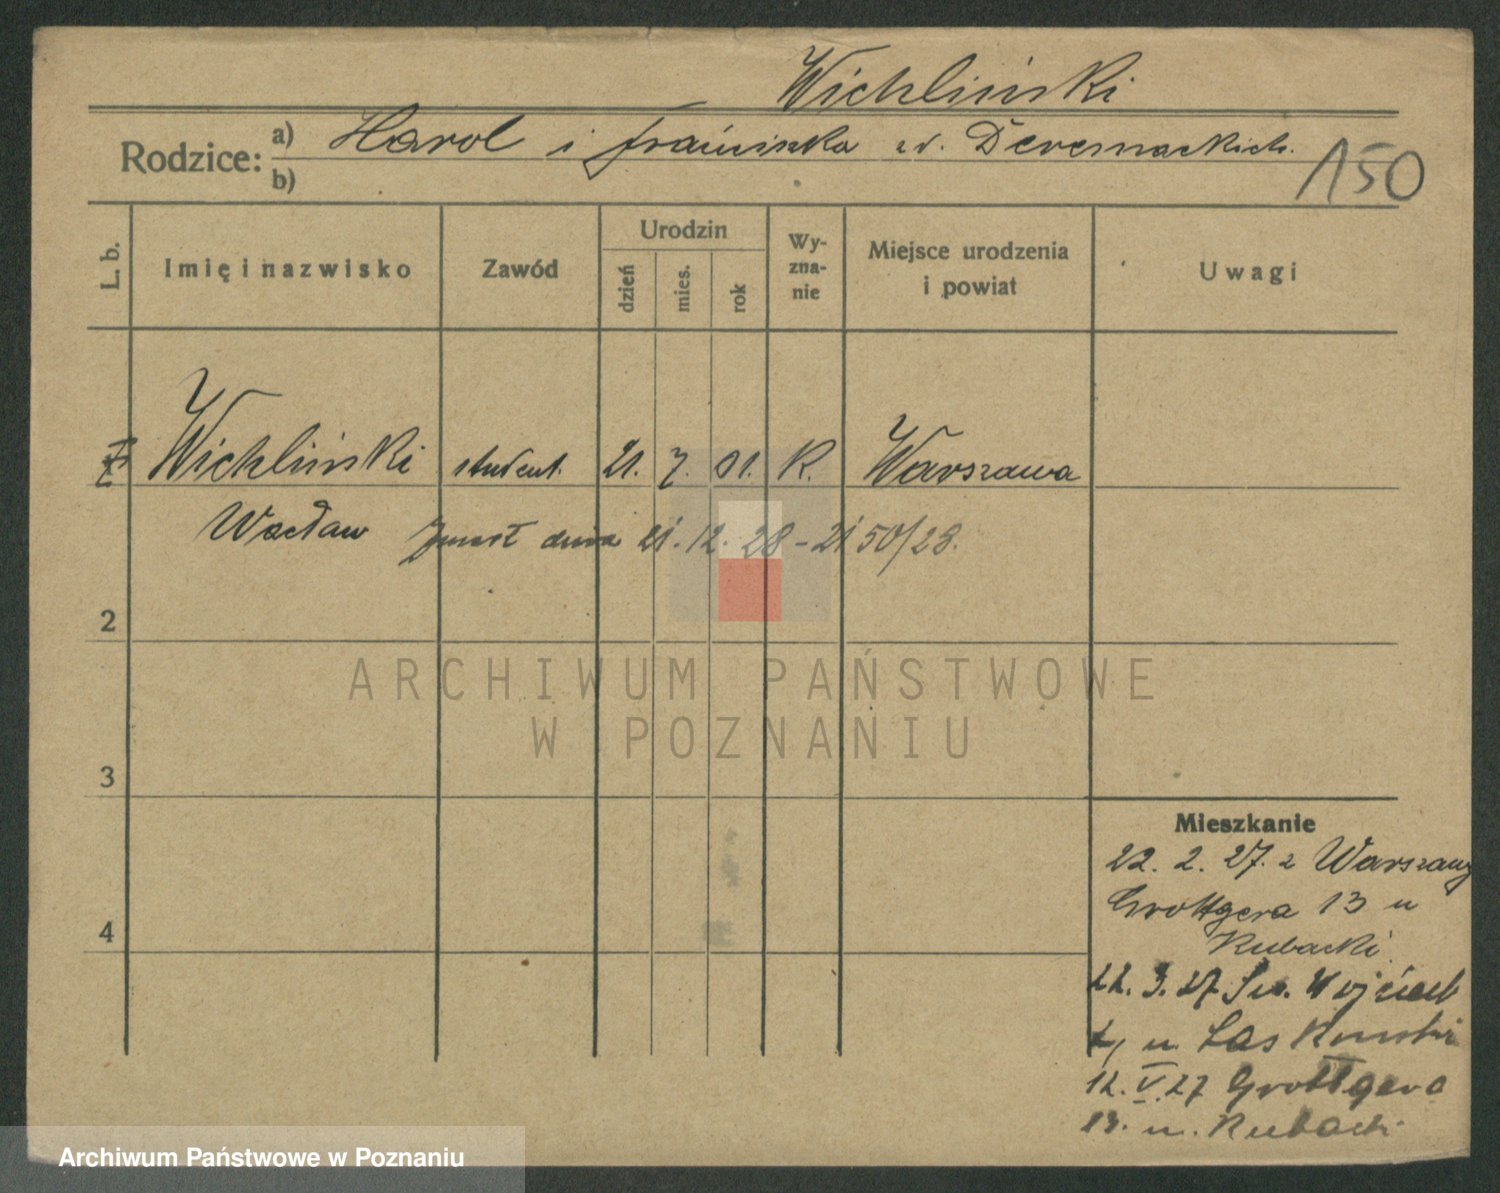 Wichliński
Rodzice: a) Karol i Franciszka z d. Deresnackich.
b)
150
L. b.
Imię i nazwisko
Zawód
Urodzin
dzień
mies.
rok
Wy-
zna-
nie
Miejsce urodzenia
i powiat
Uwagi
Wichliński student. 21. 7. 01. K. Warszawa
Wacław zmarł dnia 21. 12. 28 - 2150/28.
2
ARCHIWUM PAŃSTWOWE
W POZNANIU
3
4
Mieszkanie
22. 2. 27. z Warszawy
Grottgera 13 u
Kubacki.
22. 3. 27. Św. Wojciech
u.
12. V. 27 Grottgera
13. u. Kubacki
Archiwum Państwowe w Poznaniu